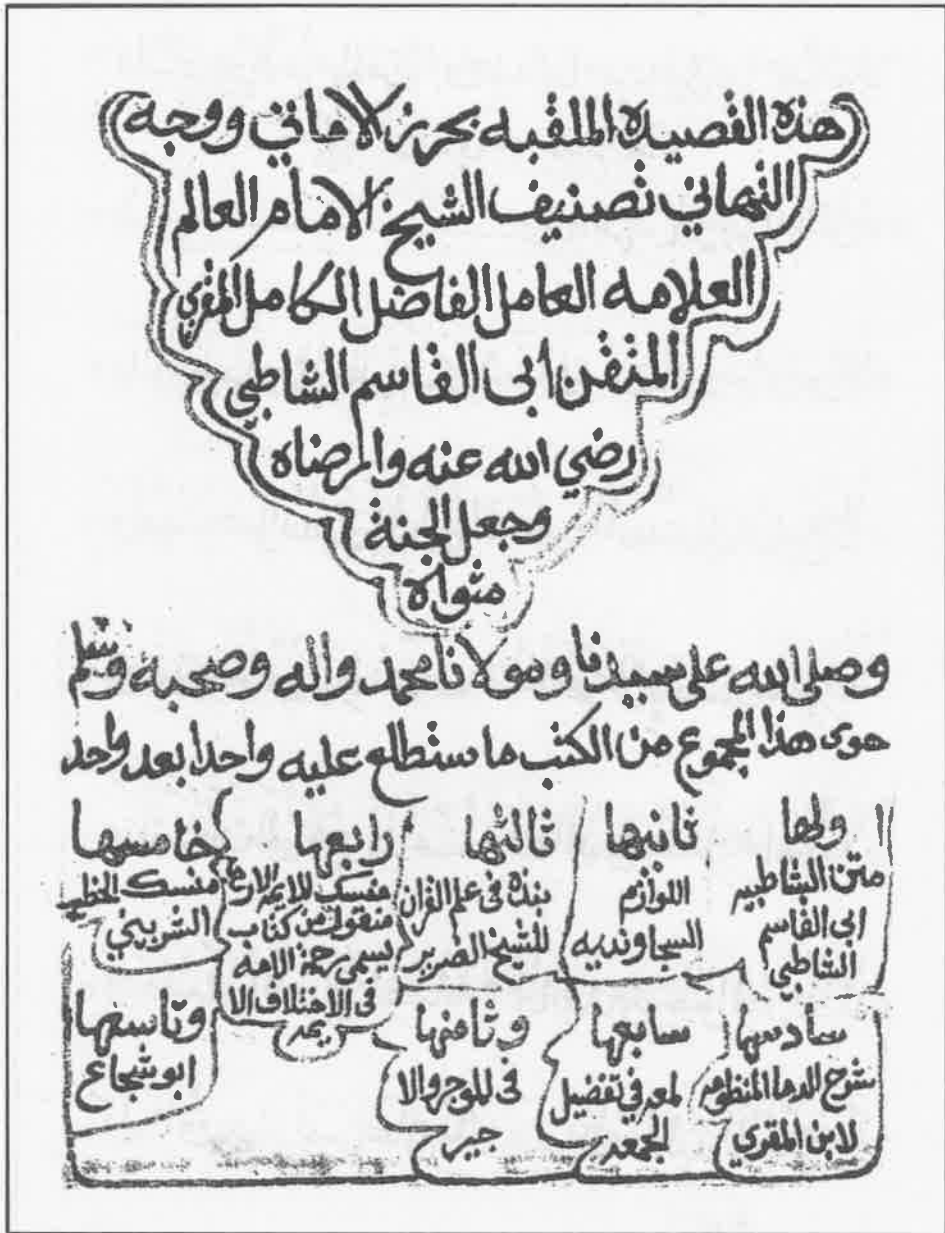 هذه القصيدة الملقبه بحرز الاماني ووجه
التهاني تصنيف الشيخ الامام العالم
العلامه العامل الفاضل الكامل المقري
المتقن أبى القاسم الشاطبي
رضي الله عنه وارضاه
وجعل الجنة
مثواه
وصلى الله على سيدنا ومولانا محمد واله وصحبه وسلم
هوى هذا المجموع من الكتب ما ستطلع عليه واحدا بعد واحد
ولها
متن الشاطبيه
ابى القاسم
الشاطبي
ثانيها
اللوازم
السجاونديه
ثالثها
نبذه فى علم القران
للشيخ الضرير
رابعها
منسك للايمه الاربعه
منقول من كتاب
يسمى رحمة الامه
فى الاختلاف الا
يمه
خامسها
منسك الخطيب
الشربيني
سادسها
شرح للدما المنظومه
لابن المقري
سابعها
لمعه في تفضيل
الجمعه
وثامنها
فى للوجر والا
جير
وتاسعها
ابو شجاع